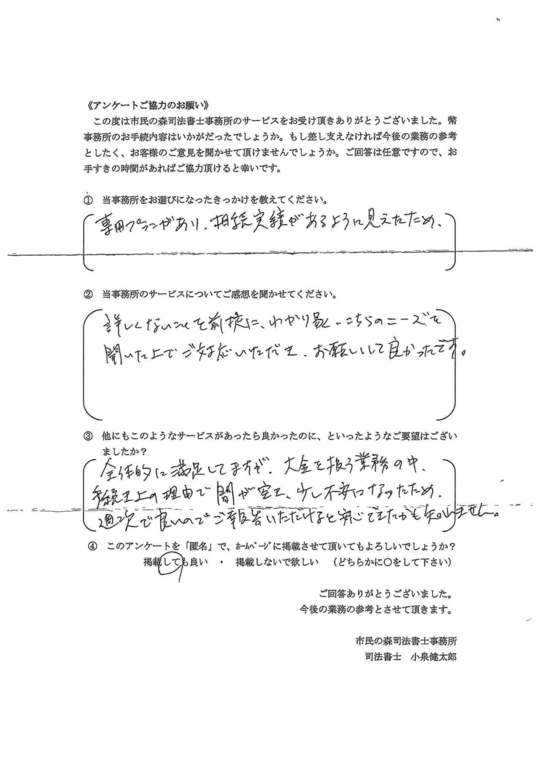 《アンケートご協力のお願い》
この度は市民の森司法書士事務所のサービスをお受け頂きありがとうございました。弊
事務所のお手続内容はいかがだったでしょうか。もし差し支えなければ今後の業務の参考
としたく、お客様のご意見を聞かせて頂けませんでしょうか。ご回答は任意ですので、お
手すきの時間があればご協力頂けると幸いです。
① 当事務所をお選びになったきっかけを教えてください。
専用プランがあり、相続実績があるように見えたため、
② 当事務所のサービスについてご感想を聞かせてください。
詳しくないことを前提に、わかり易く、こちらのニーズを
聞いた上でご対応いただき、お願いして良かったです。
③ 他にもこのようなサービスがあったら良かったのに、といったようなご要望はござい
ましたか？
全体的に満足してますが、大金を扱う業務の中、
手続き上の理由で間が空き、少し不安になったため、
週次で良いのでご報告いただけると安心できたかも知れません。
④ このアンケートを「匿名」で、ﾎｰﾑﾍﾟｰｼﾞに掲載させて頂いてもよろしいでしょうか？
掲載しても良い ・ 掲載しないで欲しい （どちらかに○をして下さい）
ご回答ありがとうございました。
今後の業務の参考とさせて頂きます。
市民の森司法書士事務所
司法書士 小泉健太郎